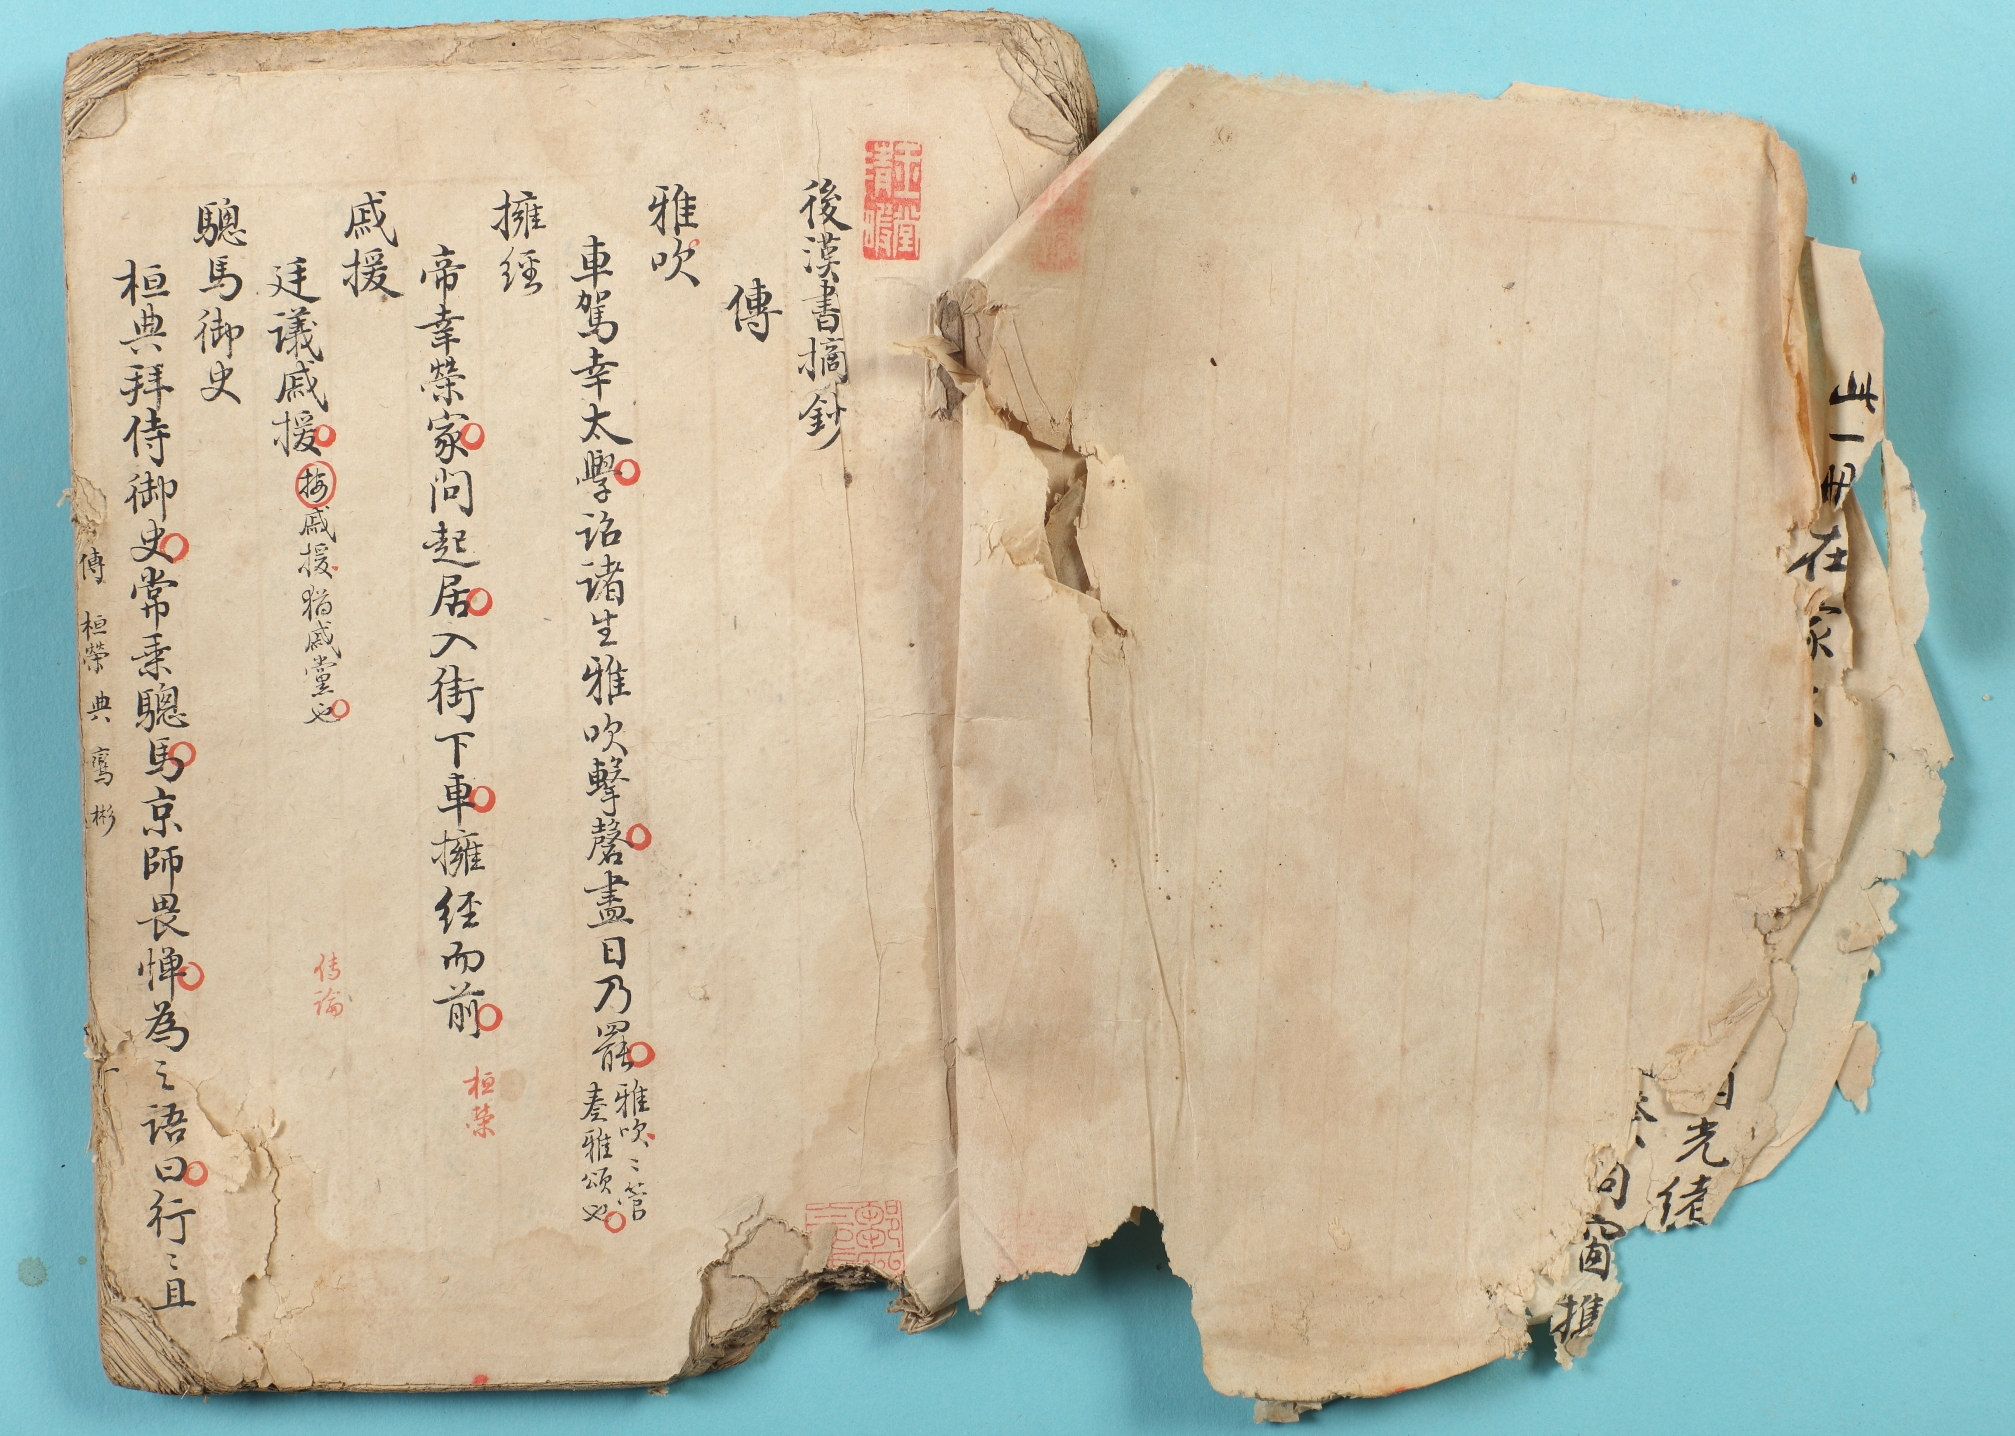 此一册在家
日光緒
向窗推
玉堂清暇
後漢書摘鈔
傳
雅吹
車駕幸太學詔諸生雅吹擊磬盡日乃罷雅吹〻管奏雅頌也
擁經
帝幸榮家問起居入街下車擁經而前 桓榮
戚援
廷議戚援按戚援猶戚黨也 傳論
驄馬御史
桓典拜侍御史常乘驄馬京師畏憚為之語曰行〻且
傳 桓榮 典 鸞 彬